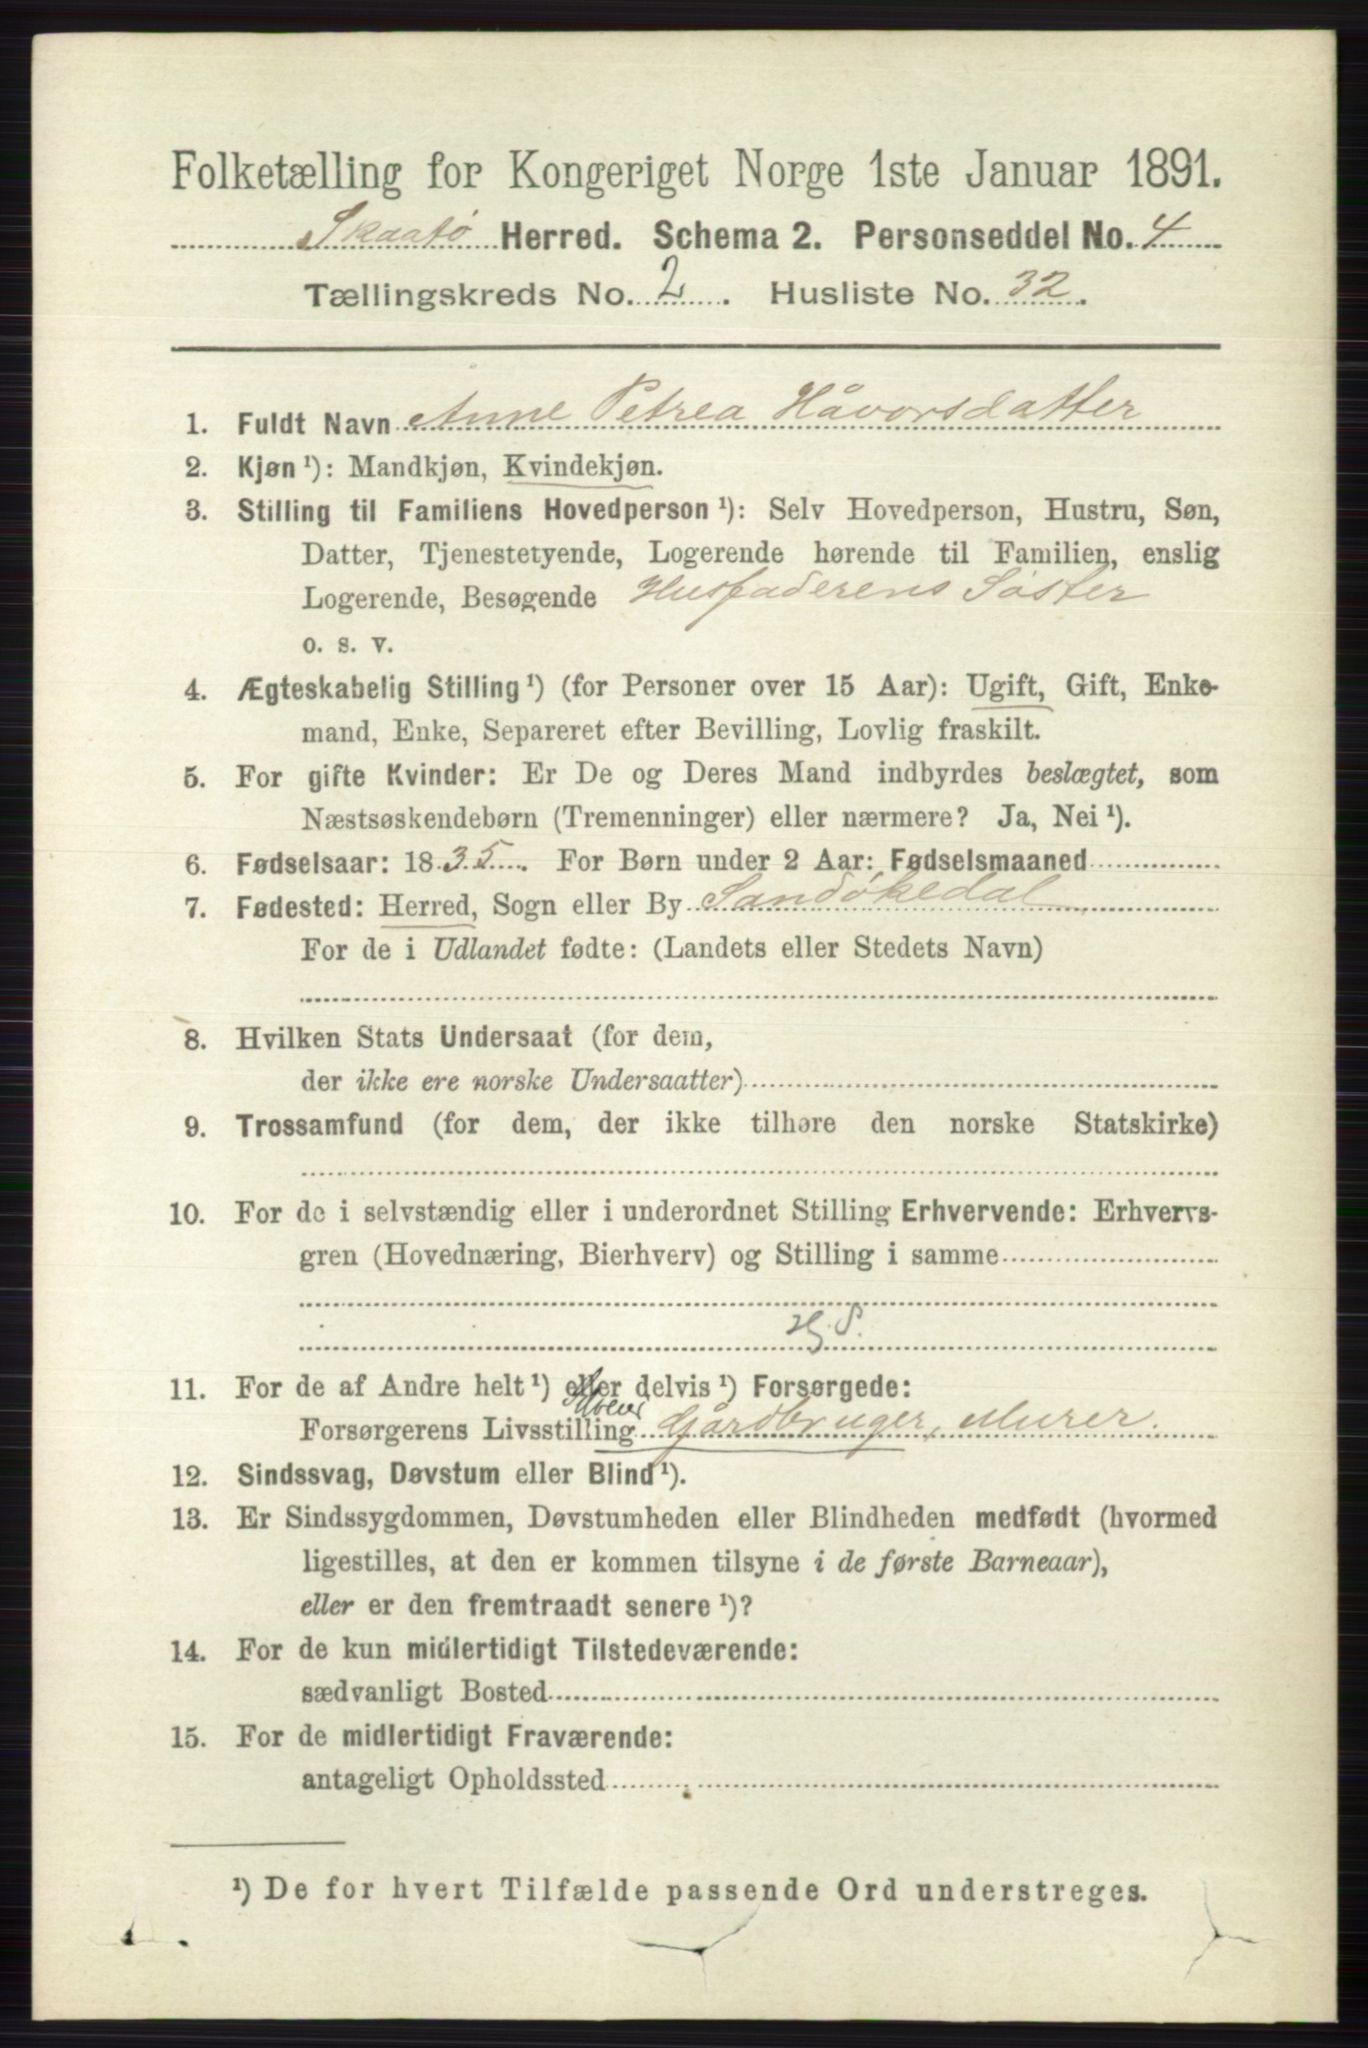 Folketælling for Kongeriget Norge 1ste Januar 1891.
Skaatø Herred. Schema 2. Personseddel No. 4
Tællingskreds No. 2. Husliste No. 32.
1. Fuldt Navn Anne Petrea Håvorsdatter
2. Kjøn ¹): Mandkjøn, Kvindekjøn.
3. Stilling til Familiens Hovedperson ¹): Selv Hovedperson, Hustru, Søn,
Datter, Tjenestetyende, Logerende hørende til Familien, enslig
Logerende, Besøgende Husfaderens Søster
o. s. v.
4. Ægteskabelig Stilling ¹) (for Personer over 15 Aar): Ugift, Gift, Enke-
mand, Enke, Separeret efter Bevilling, Lovlig fraskilt.
5. For gifte Kvinder: Er De og Deres Mand indbyrdes beslægtet, som
Næstsøskendebørn (Tremenninger) eller nærmere? Ja, Nei ¹).
6. Fødselsaar: 1835. For Børn under 2 Aar: Fødselsmaaned
7. Fødested: Herred, Sogn eller By Sandøkedal
For de i Udlandet fødte: (Landets eller Stedets Navn)
8. Hvilken Stats Undersaat (for dem,
der ikke ere norske Undersaatter)
9. Trossamfund (for dem, der ikke tilhøre den norske Statskirke)
10. For de i selvstændig eller i underordnet Stilling Erhvervende: Erhvervs-
gren (Hovednæring, Bierhverv) og Stilling i samme
11. For de af Andre helt ¹) eller delvis ¹) Forsørgede:
Forsørgerens Livsstilling Gårdbruger, Murer.
12. Sindssvag, Døvstum eller Blind ¹).
13. Er Sindssygdommen, Døvstumheden eller Blindheden medfødt (hvormed
ligestilles, at den er kommen tilsyne i de første Barneaar),
eller er den fremtraadt senere ¹)?
14. For de kun midlertidigt Tilstedeværende:
sædvanligt Bosted
15. For de midlertidigt Fraværende:
antageligt Opholdssted
¹) De for hvert Tilfælde passende Ord understreges.